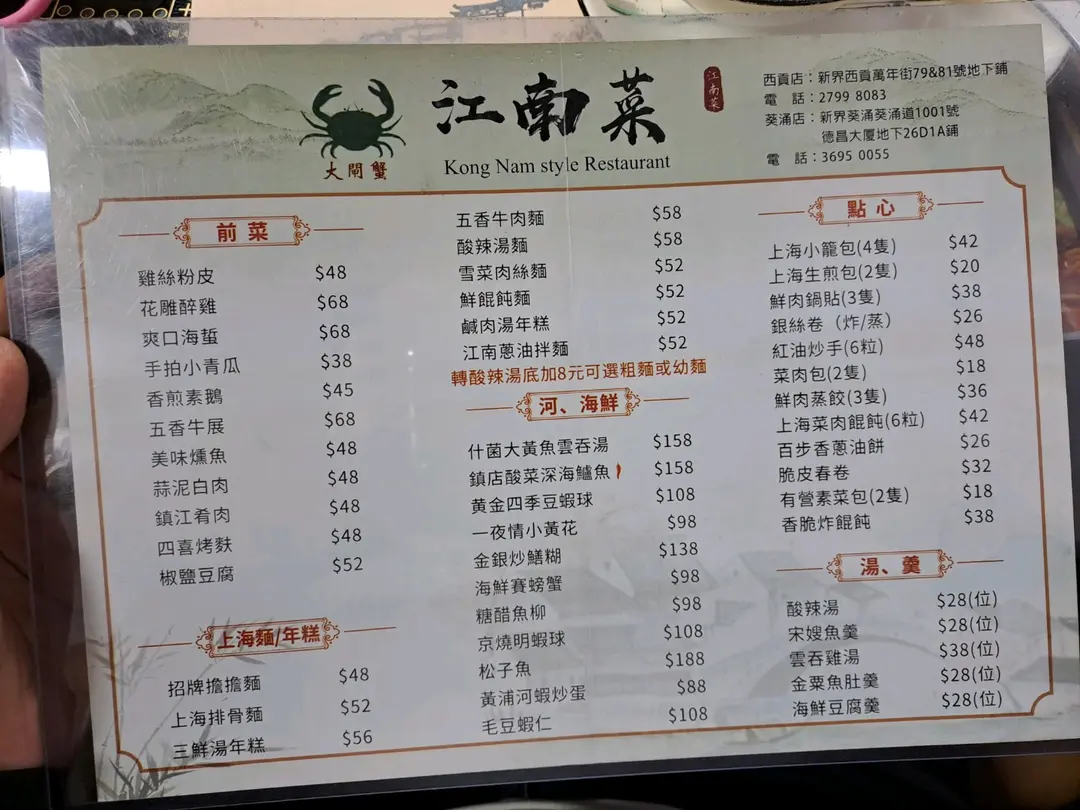 江南菜
江南菜
Kong Nam style Restaurant
大閘蟹
西貢店：新界西貢萬年街79&81號地下鋪
電　話：2799 8083
葵涌店：新界葵涌葵涌道1001號
德昌大厦地下26D1A鋪
電　話：3695 0055
前菜
雞絲粉皮 $48
花雕醉雞 $68
爽口海蜇 $68
手拍小青瓜 $38
香煎素鵝 $45
五香牛展 $68
美味燻魚 $48
蒜泥白肉 $48
鎮江肴肉 $48
四喜烤麩 $48
椒鹽豆腐 $52
上海麵/年糕
招牌擔擔麵 $48
上海排骨麵 $52
三鮮湯年糕 $56
五香牛肉麵 $58
酸辣湯麵 $58
雪菜肉絲麵 $52
鮮餛飩麵 $52
鹹肉湯年糕 $52
江南蔥油拌麵 $52
轉酸辣湯底加8元可選粗麵或幼麵
河、海鮮
什菌大黃魚雲吞湯 $158
鎮店酸菜深海鱸魚 $158
黃金四季豆蝦球 $108
一夜情小黃花 $98
金銀炒鱔糊 $138
海鮮賽螃蟹 $98
糖醋魚柳 $98
京燒明蝦球 $108
松子魚 $188
黃浦河蝦炒蛋 $88
毛豆蝦仁 $108
點心
上海小籠包(4隻) $42
上海生煎包(2隻) $20
鮮肉鍋貼(3隻) $38
銀絲卷（炸/蒸） $26
紅油炒手(6粒) $48
菜肉包(2隻) $18
鮮肉蒸餃(3隻) $36
上海菜肉餛飩(6粒) $42
百步香蔥油餅 $26
脆皮春卷 $32
有營素菜包(2隻) $18
香脆炸餛飩 $38
湯、羹
酸辣湯 $28(位)
宋嫂魚羹 $28(位)
雲吞雞湯 $38(位)
金粟魚肚羹 $28(位)
海鮮豆腐羹 $28(位)